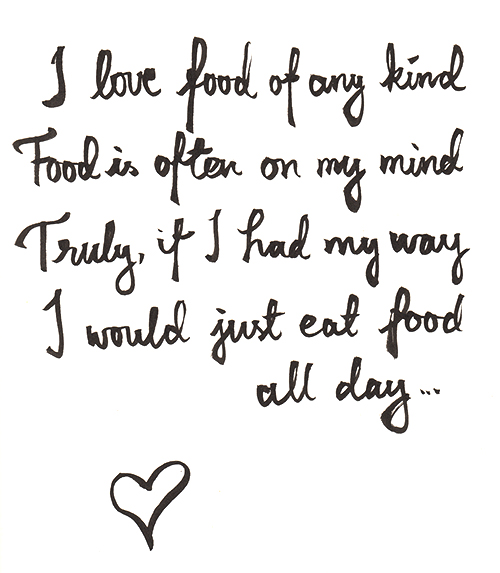 I love food of any kind
Food is often on my mind
Truly, if I had my way
I would just eat food
all day...